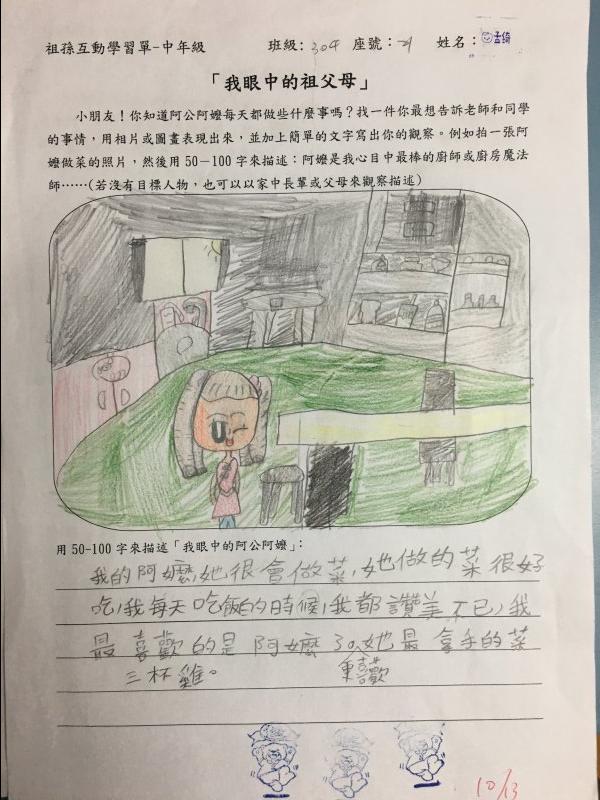 祖孫互動學習單-中年級 班級: 304 座號: 21 姓名: 孟綺
「我眼中的祖父母」
小朋友！你知道阿公阿嬤每天都做些什麼事嗎？找一件你最想告訴老師和同學
的事情，用相片或圖畫表現出來，並加上簡單的文字寫出你的觀察。例如拍一張阿
嬤做菜的照片，然後用 50－100 字來描述：阿嬤是我心目中最棒的廚師或廚房魔法
師……(若沒有目標人物，也可以以家中長輩或父母來觀察描述)
用 50-100 字來描述「我眼中的阿公阿嬤」：
我的阿嬤,她很會做菜,她做的菜很好
吃,我每天吃飯的時候,我都讚美不已,我
最喜歡的是阿嬤 她最拿手的菜
三杯雞。
10/13